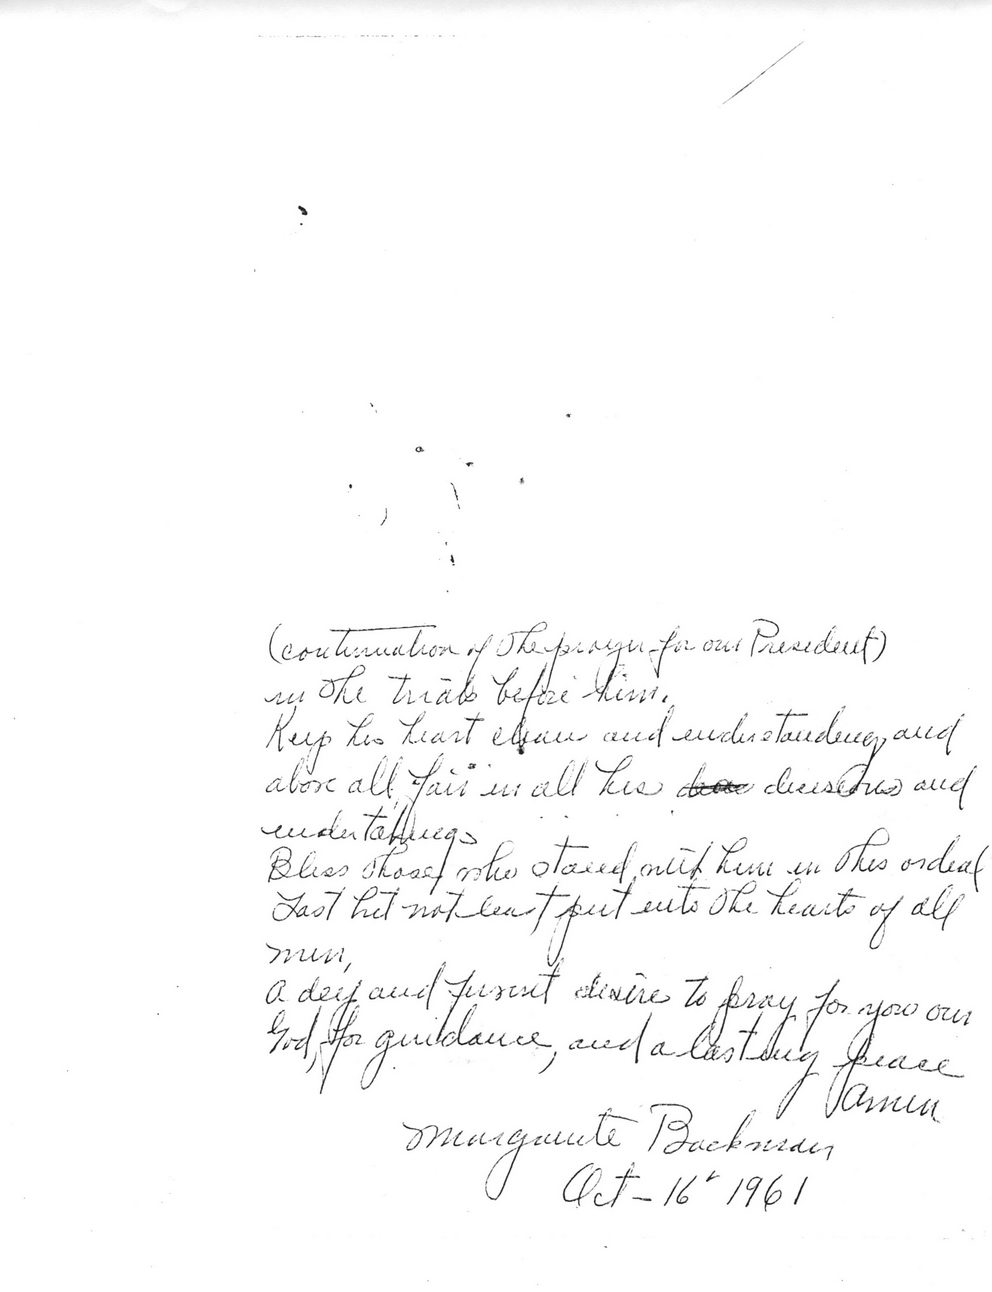 (continuation of the prayer for our President)
in the trials before him.
Keep his heart clean and understanding, and
above all, fair in all his decisions and
undertakings
Bless those, who stand with him in this ordeal
Last but not least put into the hearts of all
men,
a deep and fervent desire to pray for you our
God, for guidance, and a lasting peace
Amen
Marguerite Backman
Oct - 16 1961